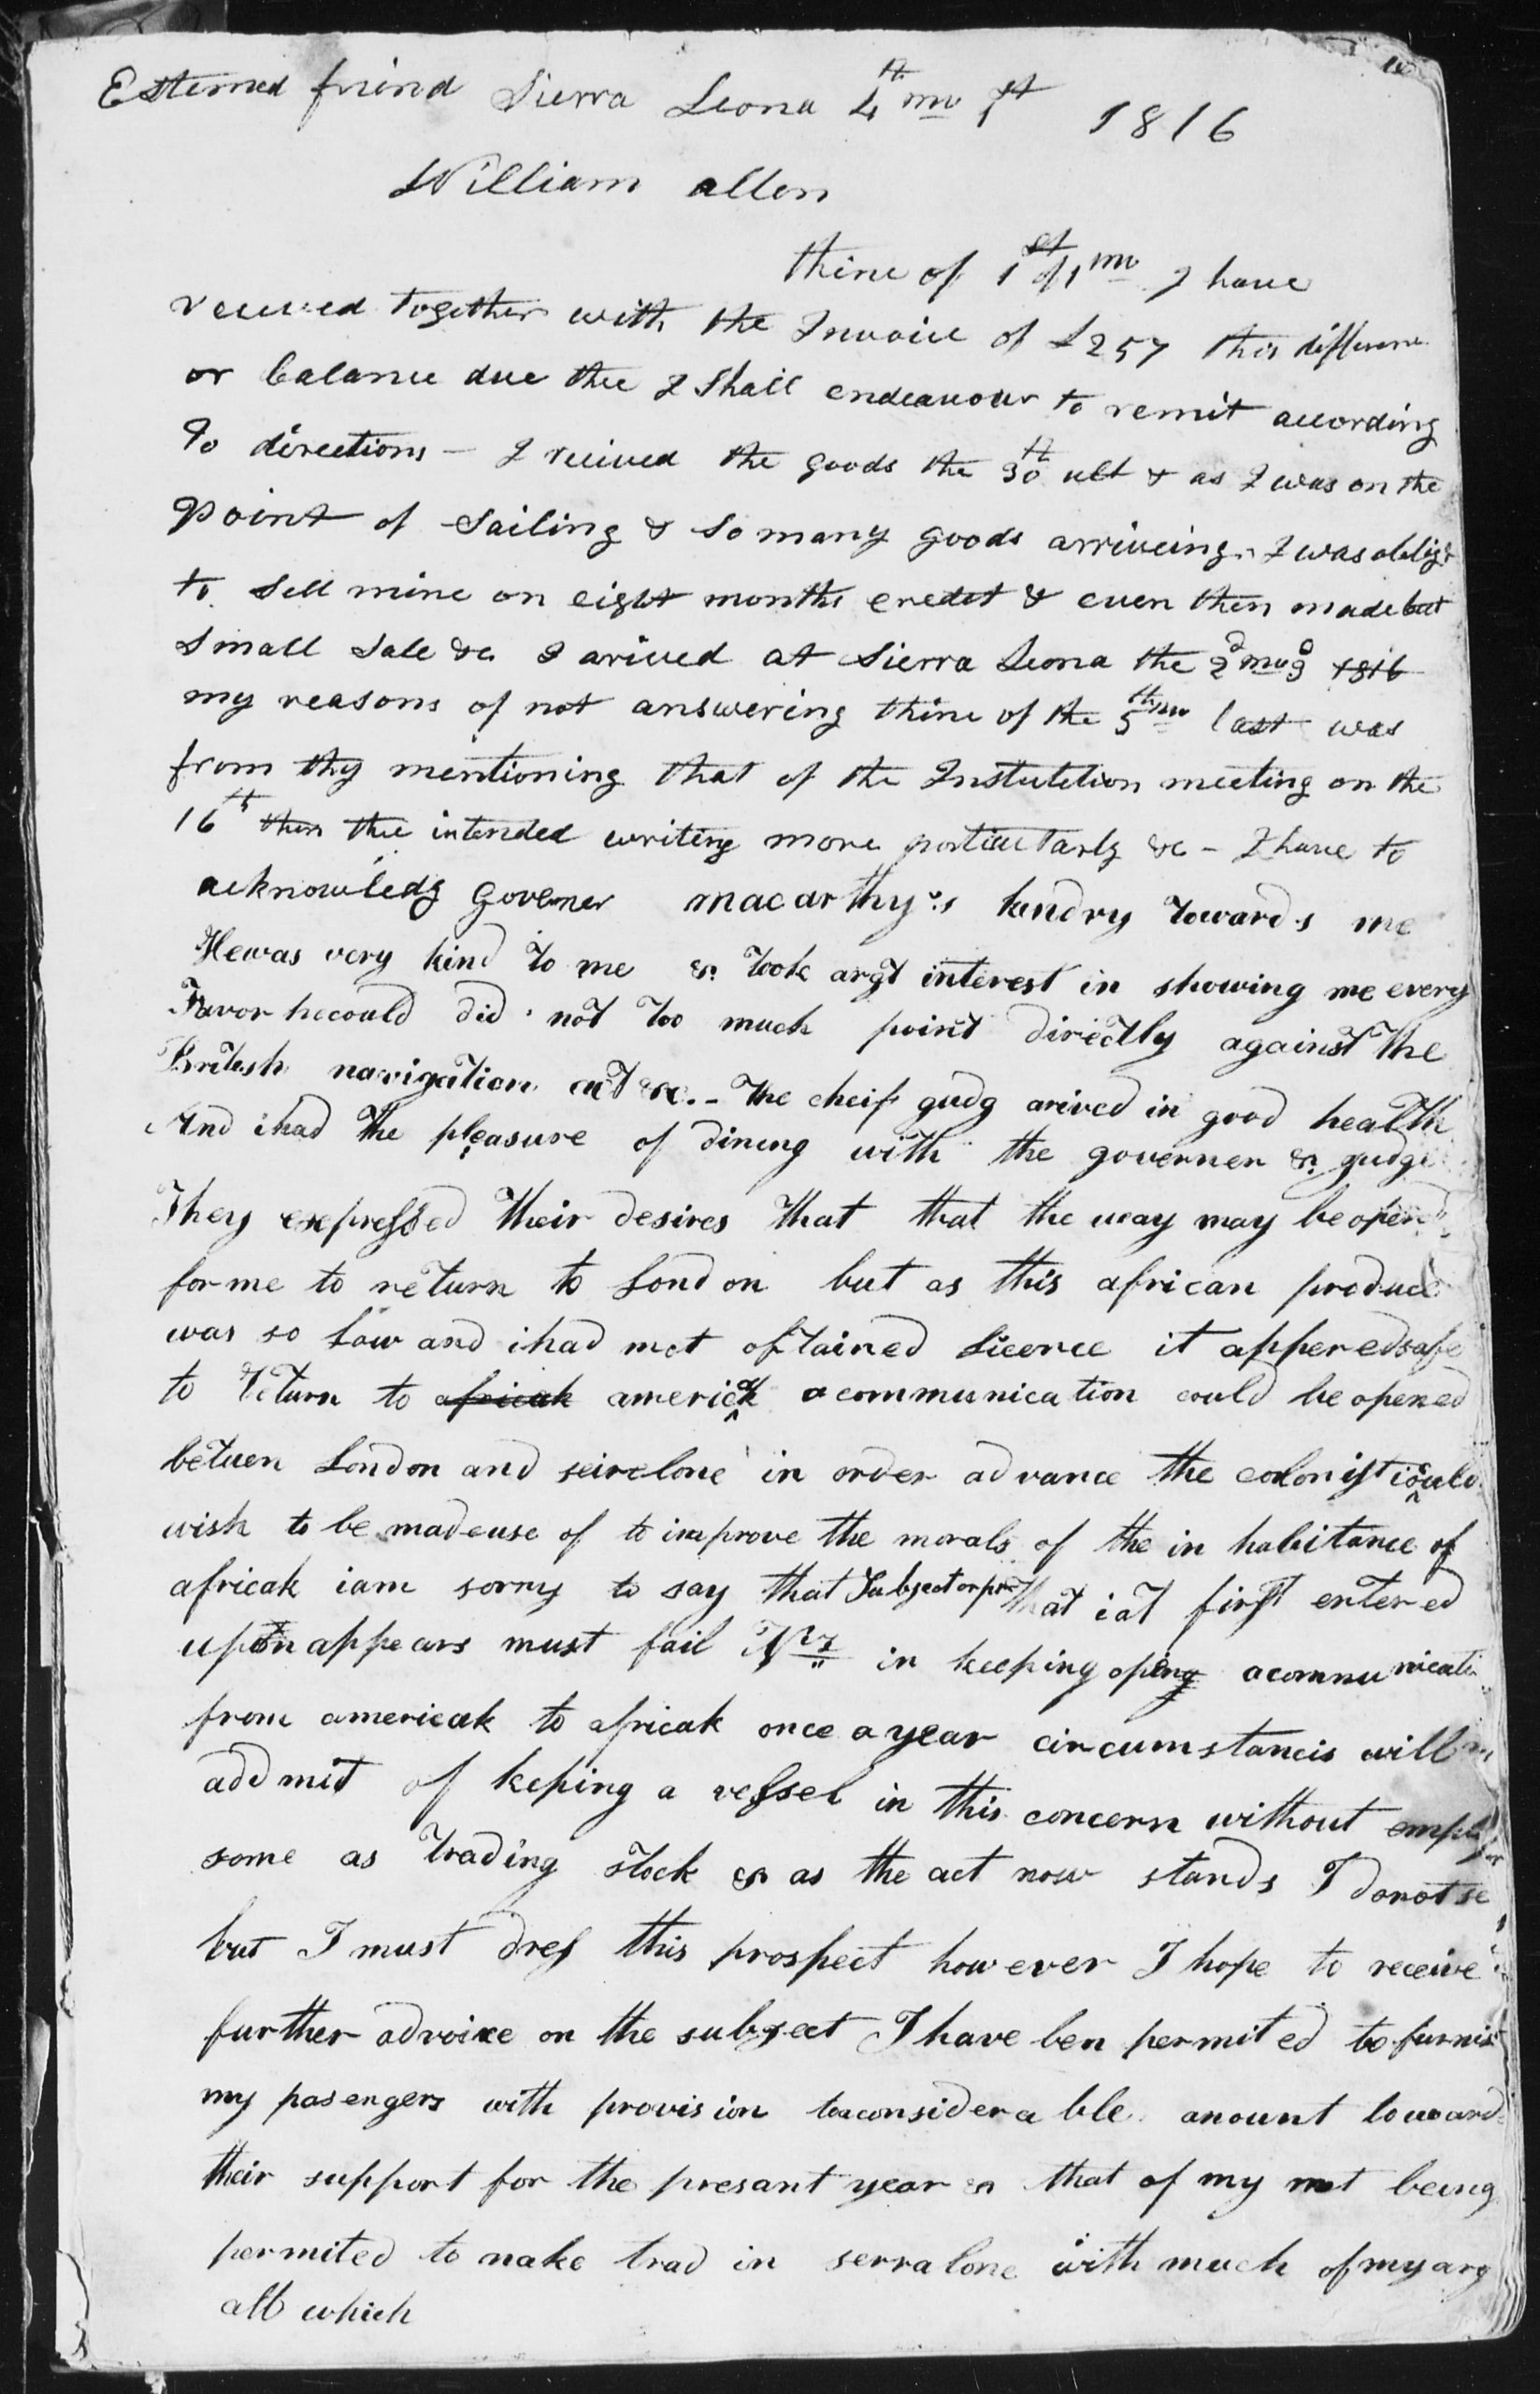 Estemed friend Sierra Leona 4th mo 1st 1816
William allen
thine of 1st of 1mo I have
received together with the Invoice of £257 this differenc
or balance due thee I Shall endeavour to remit according
To directions - I reciived the goods the 30th ult & as I was on the
Point of Sailing & So many goods arriveing I was oblig'd
to Sell mine on eight months credet & even then made but
Small Sale &c I arived at Sierra Leona the 2d mo 3d 1816
my reasons of not answering thine of the 5th mo last was
from thy mentioning that of the Instutetion meeting on the
16th then thee intended writing more particularly &c - I have to
acknowledg Governer macarthy's kindry Towards me
He was very kind To me & Took a grt interest in showing me every
Favor he could did not Too much point directly against The
British navigation act &c. - The cheif gudg arived in good health
And i had The pleasure of dining with the governer & gudge
They expressed Their desires That that the way may be open
for me to return to London but as this african produce
was so low and i had not obtained licence it appered safe
to return to africak americak a communication could be opened
betuen London and seirelone in order advance the colonist i could
wish to be made use of to improve the morals of the in habitance of
africak i am sorry to say that Subject or that i at first entered
upon appears must fail Viz in keeping oping a communicati
from americak to africak once a year circumstancis will
add mit of keping a vessel in this concern without
some as Trading stock & as the act now stands I do not se
but I must dres this prospect however I hope to receive
further advice on the subject I have ben permited to furnis
my pasengers with provision to a considerable amount toward
their support for the presant year & that of my not being
permited to make trad in serralone with much of my arg
all which